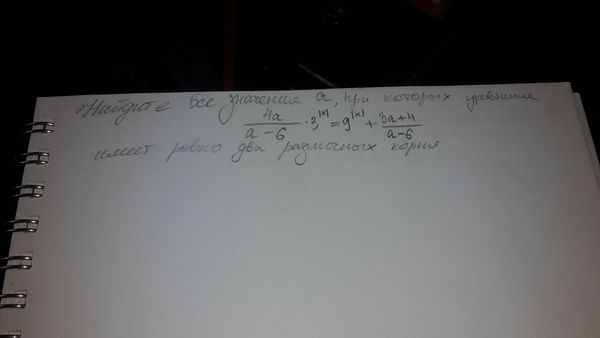 Найдите все значения a, при которых уравнение
4a/(a-6) · 3^|x| = 9^|x| + (3a+4)/(a-6)
имеет ровно два различных корня